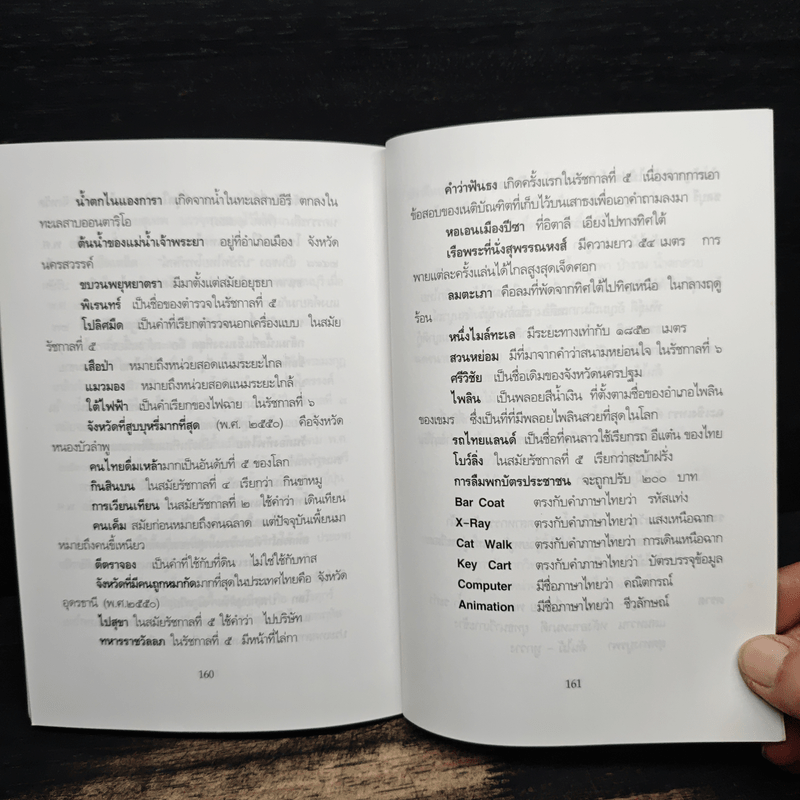 น้ำตกไนแองการา เกิดจากน้ำในทะเลสาบอีรี ตกลงใน
ทะเลสาบออนตาริโอ
ต้นน้ำของแม่น้ำเจ้าพระยา อยู่ที่อำเภอเมือง จังหวัด
นครสวรรค์
ขบวนพยุหยาตรา มีมาตั้งแต่สมัยอยุธยา
พิเรนทร์ เป็นชื่อของตำรวจในรัชกาลที่ ๕
โปลิศมืด เป็นคำที่เรียกตำรวจนอกเครื่องแบบ ในสมัย
รัชกาลที่ ๕
เสือป่า หมายถึงหน่วยสอดแนมระยะไกล
แมวมอง หมายถึงหน่วยสอดแนมระยะใกล้
ใต้ไฟฟ้า เป็นคำเรียกของไฟฉาย ในรัชกาลที่ ๖
จังหวัดที่สูบบุหรี่มากที่สุด (พ.ศ. ๒๕๕๐) คือจังหวัด
หนองบัวลำพู
คนไทยดื่มเหล้ามากเป็นอันดับที่ ๕ ของโลก
กินสินบน ในสมัยรัชกาลที่ ๔ เรียกว่า กินขาหมู
การเวียนเทียน ในสมัยรัชกาลที่ ๒ ใช้คำว่า เดินเทียน
คนเค็ม สมัยก่อนหมายถึงคนฉลาด แต่ปัจจุบันเพี้ยนมา
หมายถึงคนขี้เหนียว
ตีตราจอง เป็นคำที่ใช้กับที่ดิน ไม่ใช่ใช้กับทาส
จังหวัดที่มีคนถูกหมากัดมากที่สุดในประเทศไทยคือ จังหวัด
อุดรธานี (พ.ศ.๒๕๕๐)
ไปสุขา ในสมัยรัชกาลที่ ๕ ใช้คำว่า ไปบริษัท
ทหารราชวัลลภ ในรัชกาลที่ ๕ มีหน้าที่ไล่กา
160
คำว่าฟันธง เกิดครั้งแรกในรัชกาลที่ ๕ เนื่องจากการเอา
ข้อสอบของเนติบัณฑิตที่เก็บไว้บนเสาธงเพื่อเอาคำถามลงมา
หอเอนเมืองปีซา ที่อิตาลี เอียงไปทางทิศใต้
เรือพระที่นั่งสุพรรณหงส์ มีความยาว ๕๔ เมตร การ
พายแต่ละครั้งแล่นได้ไกลสูงสุดเจ็ดศอก
ลมตะเภา คือลมที่พัดจากทิศใต้ไปทิศเหนือ ในกลางฤดู
ร้อน
หนึ่งไมล์ทะเล มีระยะทางเท่ากับ ๑๘๕๒ เมตร
สวนหย่อม มีที่มาจากคำว่าสนามหย่อนใจ ในรัชกาลที่ ๖
ศรีวิชัย เป็นชื่อเดิมของจังหวัดนครปฐม
ไพลิน เป็นพลอยสีน้ำเงิน ที่ตั้งตามชื่อของอำเภอไพลิน
ของเขมร ซึ่งเป็นที่ที่มีพลอยไพลินสวยที่สุดในโลก
รถไทยแลนด์ เป็นชื่อที่คนลาวใช้เรียกรถ อีแต๋น ของไทย
โบว์ลิ่ง ในสมัยรัชกาลที่ ๕ เรียกว่าสะบ้าฝรั่ง
การลืมพกบัตรประชาชน จะถูกปรับ ๒๐๐ บาท
Bar Coat ตรงกับคำภาษาไทยว่า รหัสแท่ง
X-Ray ตรงกับคำภาษาไทยว่า แสงเหนือฉาก
Cat Walk ตรงกับคำภาษาไทยว่า การเดินเหนือฉาก
Key Cart ตรงกับคำภาษาไทยว่า บัตรบรรจุข้อมูล
Computer มีชื่อภาษาไทยว่า คณิตกรณ์
Animation มีชื่อภาษาไทยว่า ชีวลักษณ์
161